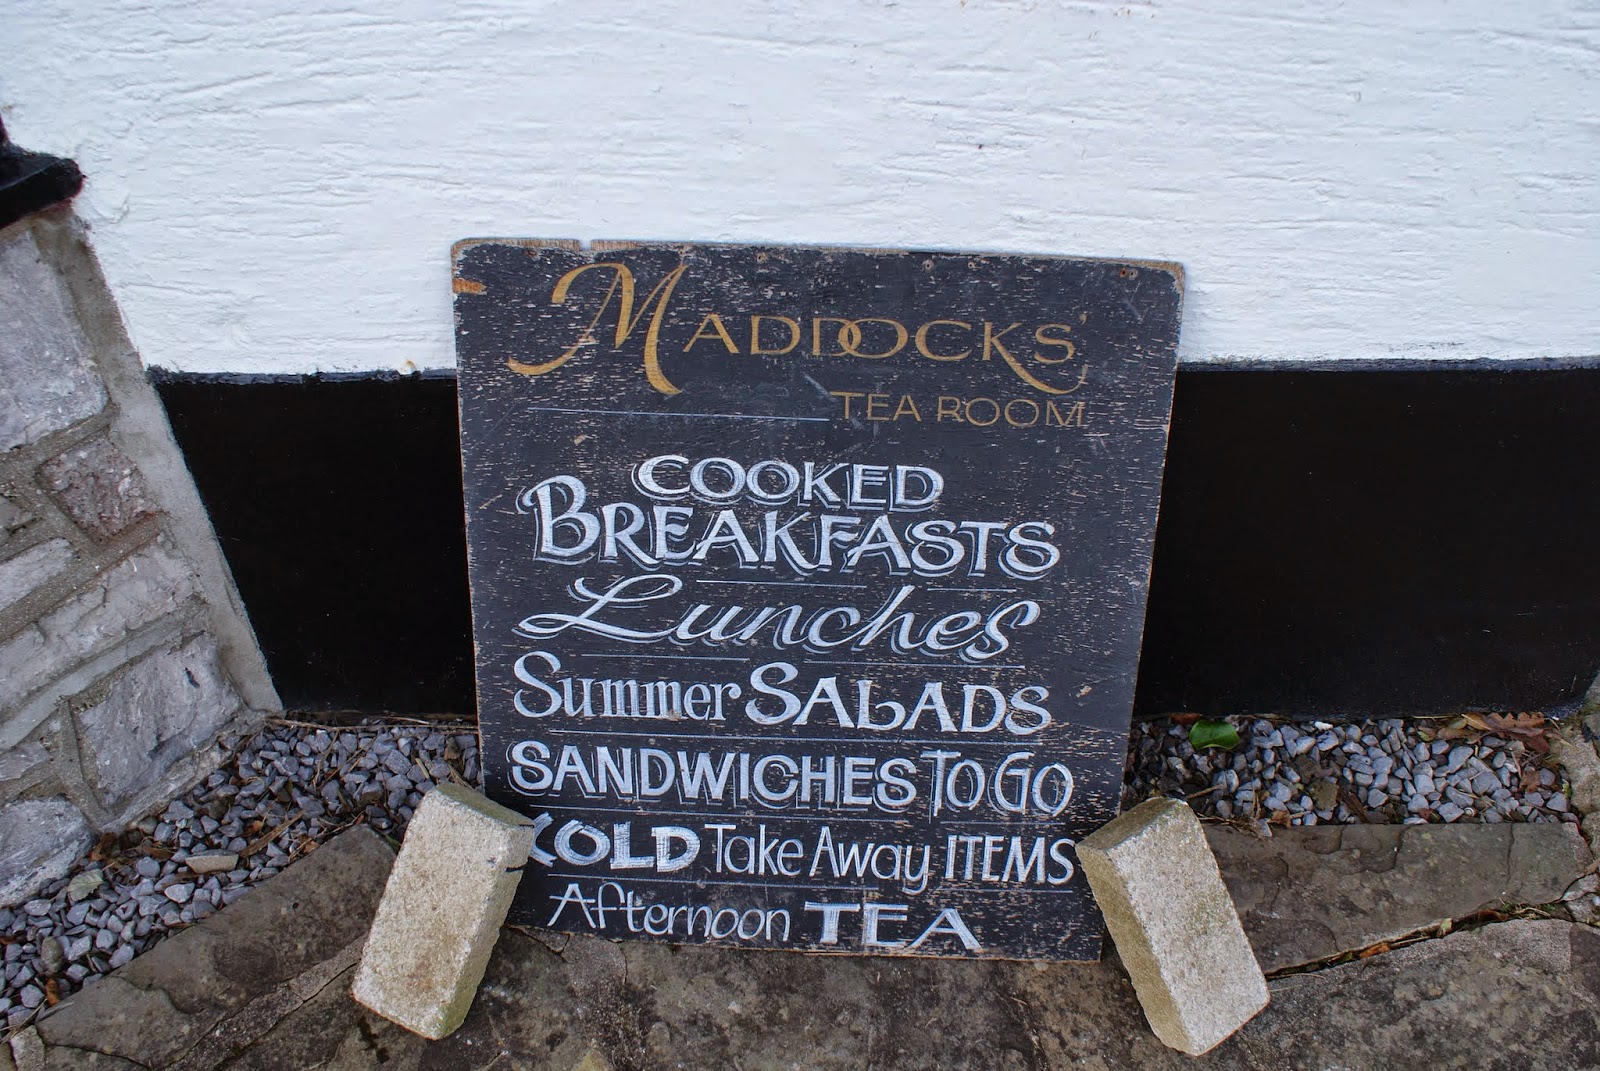 MADDOCKS'
TEA ROOM
COOKED
BREAKFASTS
Lunches
Summer SALADS
SANDWICHES TO GO
COLD Take Away ITEMS
Afternoon TEA